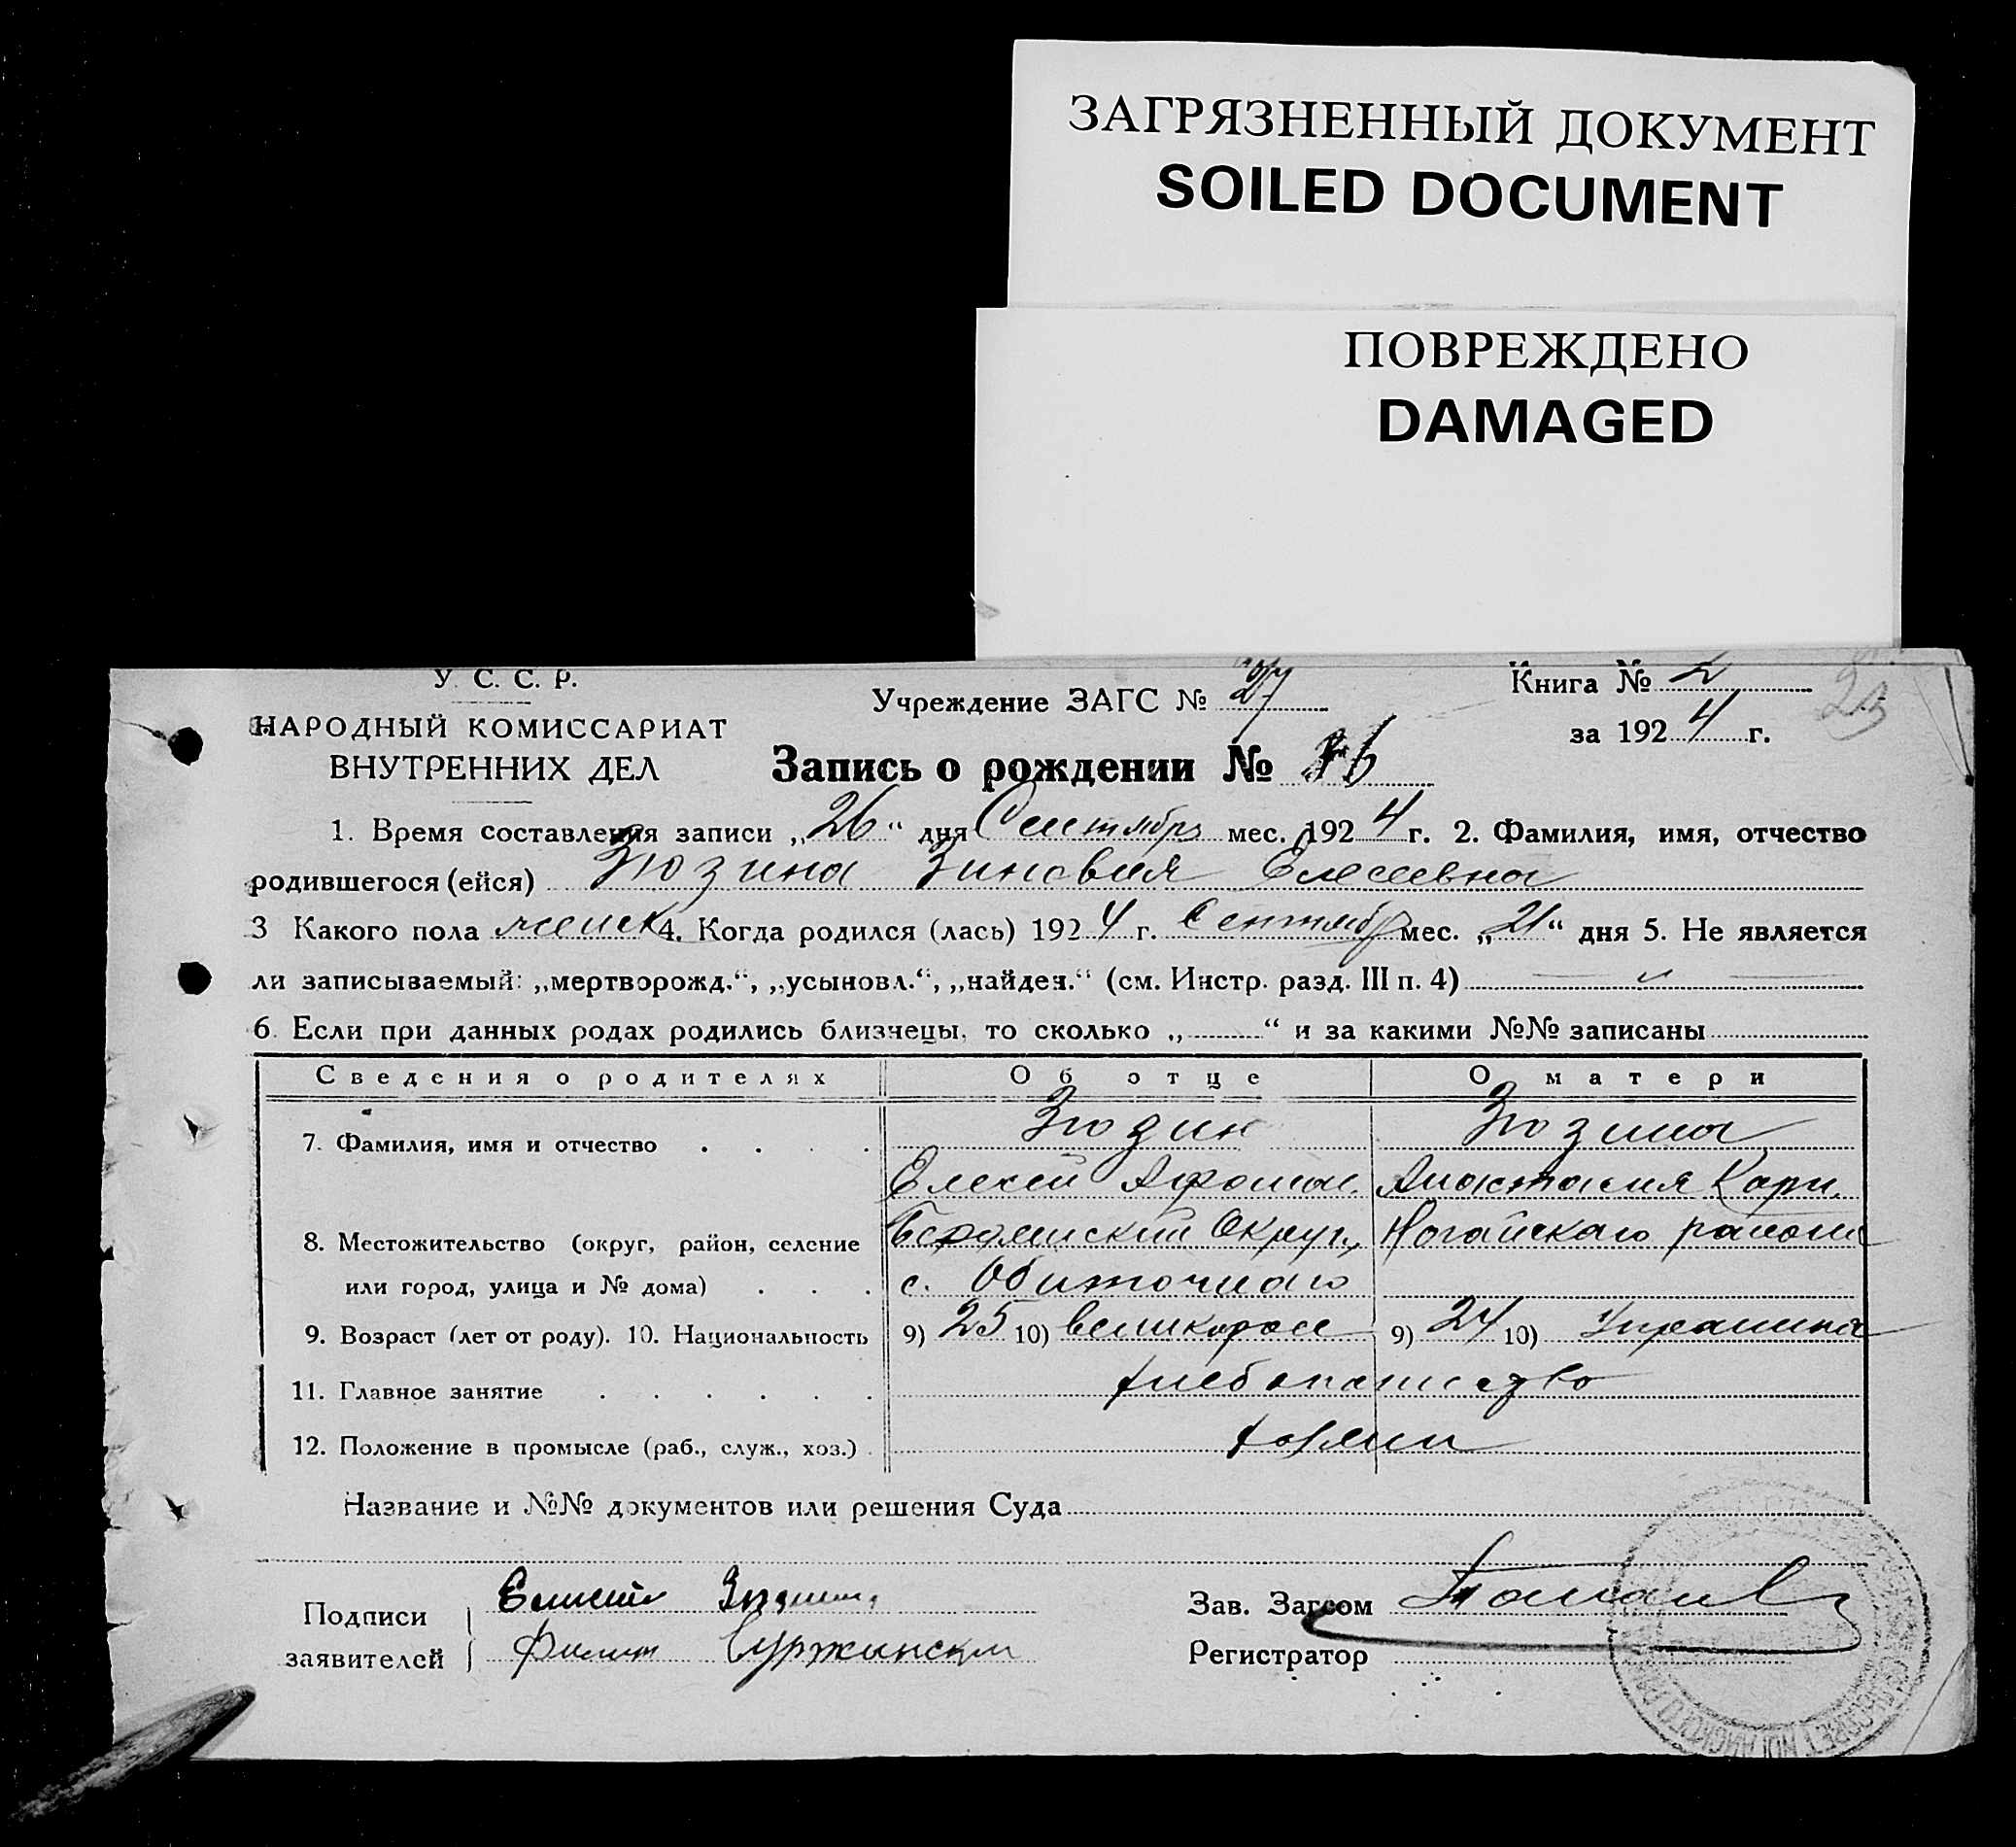 ЗАГРЯЗНЕННЫЙ ДОКУМЕНТ
SOILED DOCUMENT
ПОВРЕЖДЕНО
DAMAGED
У. С. С. Р.
НАРОДНЫЙ КОМИССАРИАТ
ВНУТРЕННИХ ДЕЛ
Учреждение ЗАГС № 27
Книга № 2
за 1924 г.
23
Запись о рождении № 16
1. Время составления записи „26“ дня Сентябрь мес. 1924 г. 2. Фамилия, имя, отчество
родившегося (ейся) Зюзина Зиновия Елесевна
3 Какого пола женск 4. Когда родился (лась) 1924 г. Сентябр мес. „21“ дня 5. Не является
ли записываемый: „мертворожд.“, „усыновл.“, „найден.“ (см. Инстр. разд. III п. 4)
6. Если при данных родах родились близнецы, то сколько „ “ и за какими №№ записаны
Сведения о родителях Об отце О матери
7. Фамилия, имя и отчество Зюзин Зюзина
Елесей Афонас. Анастасия Карп.
8. Местожительство (округ, район, селение Бердянский Округ, Ногайского района
или город, улица и № дома) с. Обиточное
9. Возраст (лет от роду). 10. Национальность 9) 25 10) великорос 9) 24 10) Украинка
11. Главное занятие хлебопашество
12. Положение в промысле (раб., служ., хоз.) хозяин
Название и №№ документов или решения Суда
Подписи заявителей Елисей Зюзин
Филип Суржинский
Зав. Загсом
Регистратор